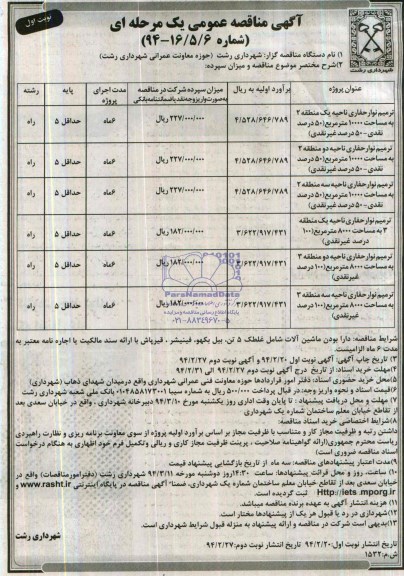 نوبت اول
آگهی مناقصه عمومی یک مرحله ای
(شماره ۹۴-۱۶/۵/۶)
شهرداری رشت
۱) نام دستگاه مناقصه گزار: شهرداری رشت (حوزه معاونت عمرانی شهرداری رشت)
۲)شرح مختصر موضوع مناقصه و میزان سپرده:
عنوان پروژه برآورد اولیه به ریال میزان سپرده شرکت در مناقصه بصورت واریز وجه نقد یا ضمانتنامه بانکی مدت اجرای پروژه پایه رشته
ترمیم نوار حفاری ناحیه یک منطقه ۲ به مساحت ۱۰۰۰۰ مترمربع(۵۰ درصد نقدی-۵۰ درصد غیرنقدی) ۴/۵۲۸/۶۴۶/۷۸۹ ۲۲۷/۰۰۰/۰۰۰ ریال ۶ماه حداقل ۵ راه
ترمیم نوار حفاری ناحیه دو منطقه ۲ به مساحت ۱۰۰۰۰ مترمربع(۵۰ درصد نقدی-۵۰ درصد غیرنقدی) ۴/۵۲۸/۶۴۶/۷۸۹ ۲۲۷/۰۰۰/۰۰۰ ریال ۶ماه حداقل ۵ راه
ترمیم نوار حفاری ناحیه سه منطقه ۲ به مساحت ۱۰۰۰۰ مترمربع(۵۰ درصد نقدی-۵۰ درصد غیرنقدی) ۴/۵۲۸/۶۴۶/۷۸۹ ۲۲۷/۰۰۰/۰۰۰ ریال ۶ماه حداقل ۵ راه
ترمیم نوار حفاری ناحیه یک منطقه ۳ به مساحت ۸۰۰۰ مترمربع(۱۰۰ درصد غیرنقدی) ۳/۶۲۲/۹۱۷/۴۳۱ ۱۸۲/۰۰۰/۰۰۰ ریال ۶ماه حداقل ۵ راه
ترمیم نوار حفاری ناحیه دو منطقه ۳ به مساحت ۸۰۰۰ مترمربع(۱۰۰ درصد غیرنقدی) ۳/۶۲۲/۹۱۷/۴۳۱ ۱۸۲/۰۰۰/۰۰۰ ریال ۶ماه حداقل ۵ راه
ترمیم نوار حفاری ناحیه سه منطقه ۳ به مساحت ۸۰۰۰ مترمربع(۱۰۰ درصد غیرنقدی) ۳/۶۲۲/۹۱۷/۴۳۱ ۱۸۲/۰۰۰/۰۰۰ ریال ۶ماه حداقل ۵ راه
ParsNamadData
پایگاه اطلاع رسانی مناقصه و مزایده
۰۲۱-۸۸۳۴۹۶۷۰-۵
شرایط مناقصه: دارا بودن ماشین آلات شامل غلطک ۵ تن، بیل بکهو، فینیشر، قیرپاش با ارائه سند مالکیت یا اجاره نامه معتبر به
مدت ۶ ماه الزامیست.
۳) تاریخ چاپ آگهی: آگهی نوبت اول ۹۴/۲/۲۰ و آگهی نوبت دوم ۹۴/۲/۲۷
۴)مهلت خرید اسناد: از تاریخ درج آگهی نوبت دوم ۹۴/۲/۲۷ الی ۹۴/۲/۳۱
۵)محل خرید حضوری اسناد: دفتر امور قراردادها حوزه معاونت فنی عمرانی شهرداری واقع درمیدان شهدای ذهاب (شهرداری)
۶)قیمت اسناد و نحوه واریز وجه: در قبال پرداخت ۵۰۰/۰۰۰ ریال به شماره سیبا بانک ملی شعبه شهرداری رشت
۷) مهلت و محل دریافت پیشنهاد : تا پایان وقت اداری روز یکشنبه مورخ ۹۴/۳/۱۰ دبیرخانه شهرداری ، واقع در خیابان سعدی بعد
از تقاطع خیابان معلم ساختمان شماره یک شهرداری
۸)شرایط اختصاصی خرید اسناد مناقصه:
داشتن رتبه و ظرفیت مجاز کار و متناسب با ظرفیت مجاز بر اساس برآورد اولیه پروژه از سوی معاونت برنامه ریزی و نظارت راهبردی
ریاست محترم جمهوری(ارائه گواهینامه صلاحیت ، پرینت ظرفیت مجاز کاری و ریالی وتکمیل فرم خود اظهاری به هنگام درخواست
اسناد مناقصه ضروری است)
۹)مدت اعتبار پیشنهادهای مناقصه: سه ماه از تاریخ بازگشایی پیشنهاد قیمت
۱۰) ساعت، روز و محل قرائت پیشنهادها: ساعت ۱۴:۳۰ روز دوشنبه مورخه ۹۴/۳/۱۱ شهرداری رشت (دفتر امور مناقصات) واقع در
خیابان سعدی بعد از تقاطع خیابان معلم ساختمان شماره یک شهرداری، ضمنا" آگهی مناقصه در پایگاه اینترنتی www.rasht.ir و
Http://iets.mporg.ir ثبت گردیده است.
۱۱) هزینه انتشار آگهی به عهده برنده مناقصه میباشد.
۱۲)شهرداری در رد یا قبول هر یک از پیشنهادها مختار است.
۱۳)بدیهی است شرکت در مناقصه و ارائه پیشنهاد به منزله قبول شرایط شهرداری است.
تاریخ انتشار نوبت اول:۹۴/۲/۲۰ تاریخ انتشار نوبت دوم:۹۴/۲/۲۷
شهرداری رشت
ش.م:۱۵۳۲